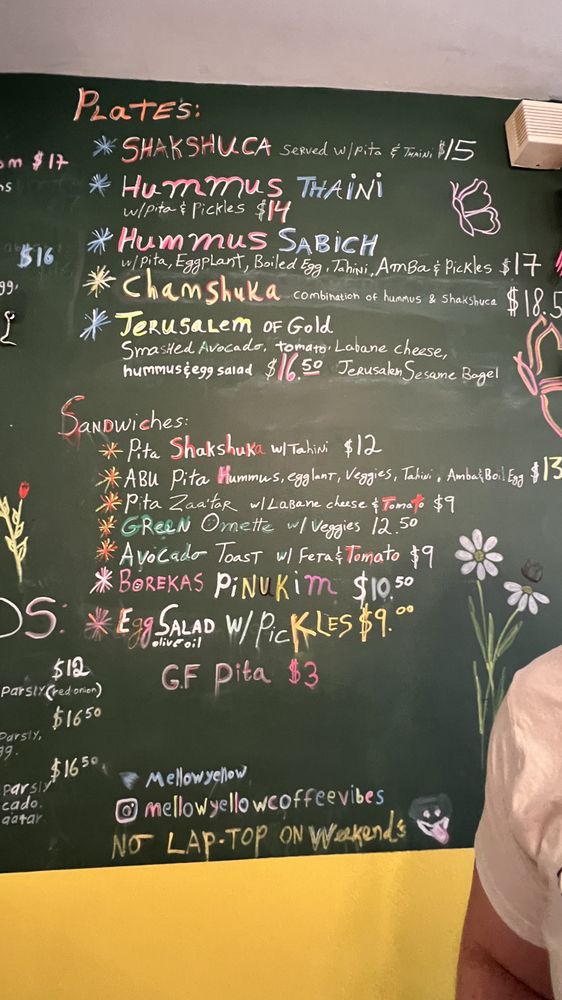 PLATE'S:
SHAKSHUCA served w/pita & THAINI $15
Hummus THAINI
w/pita & Pickles $14
Hummus SABICH
w/pita, Eggplant, Boiled Egg, Tahini, AmBa & Pickles $17
Chamshuka combination of hummus & shakshuca $18.5
JERUSALEM OF GOLD
Smashed Avocado, tomato, Labane cheese,
hummus & egg salad $16.50 Jerusalem Sesame Bagel
SANDWICHES:
Pita Shakshuka w/Tahini $12
ABU Pita Hummus, egglant, Veggies, Tahini, Amba & Boil Egg $13
Pita Zaatar w/Labane cheese & Tomato $9
GREEN Omette w/ Veggies 12.50
AVOCADO TOAST w/ FETA & Tomato $9
BOREKAS PINUKIM $10.50
Egg SALAD W/ PicKLES $9.00
olive oil
G.F Pita $3
Mellowyellow
mellowyellowcoffeevibes
NO LAP-TOP ON Weekends
$17
$16
gg,
DS:
$12
Parsly (red onion)
$16.50
Parsly,
gg.
$16.50
Parsly
cado.
aatar